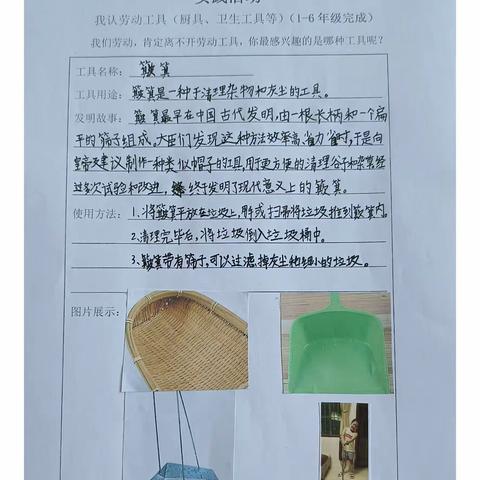 实践活动
我认劳动工具（厨具、卫生工具等）（1-6年级完成）
我们劳动，肯定离不开劳动工具，你最感兴趣的是哪种工具呢？
工具名称： 簸箕
工具用途：簸箕是一种于清理杂物和灰尘的工具。
发明故事：簸箕最早在中国古代发明，由一根长柄和一个扁
平的筛子组成，大臣们发现这种方法效率高，省力省时，于是向
皇帝建议制作一种类似帽子的工具，用于更方便的清理谷子和杂物经
过多次试验和改进，终于发明了现代意义上的簸箕。
使用方法：1.将簸箕平放在垃圾上，用手或扫帚将垃圾推到簸箕内。
2.清理完毕后，将垃圾倒入垃圾桶中。
3.簸箕带有筛子，可以过滤掉灰尘和细小的垃圾。
图片展示：